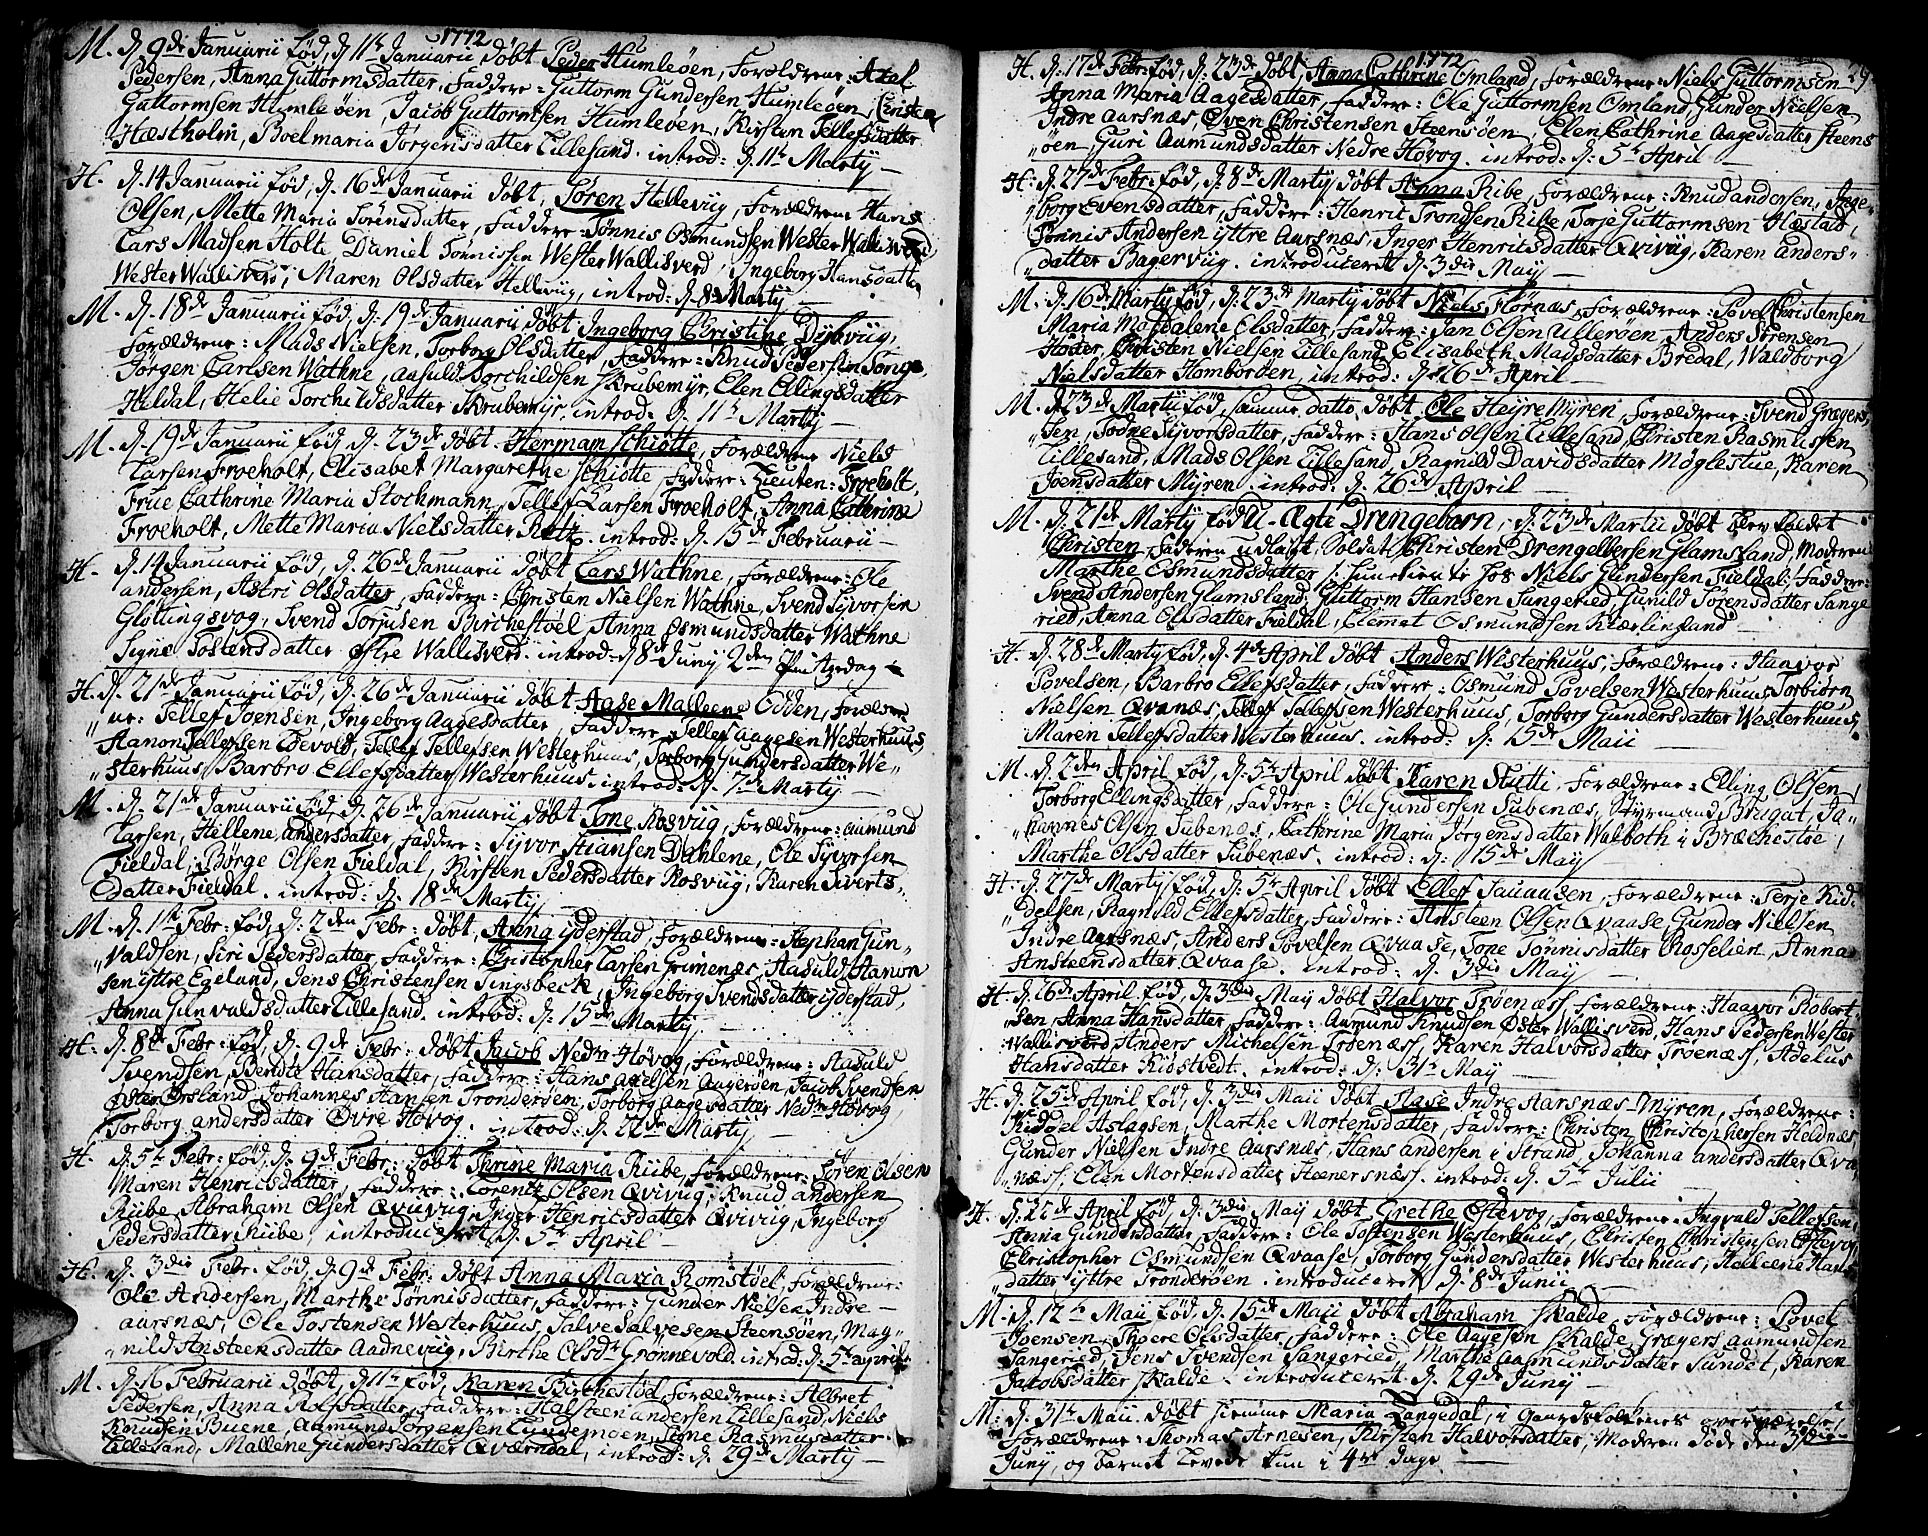 1772
M. d. 9de Januarii fød, d. 11te Januarii døbt Peder Humleøen, Forældrene: Axel
Pedersen, Anna Guttormsdatter, Faddere: Guttorm Gundersen Humleøen, Christen
Guttormsen Humleøen, Jacob Guttormsen Humleøen, Kirsten Tellefsdatter
Hæstholm, Boelmaria Jørgensdatter Lillesand. introd: d. 11te Martij
H. d. 14 Januarii fød, d. 16de Januarii døbt, Søren Hellevüg, Forældrene Hans
Olsen, Mette Maria Sørensdatter, Faddere: Tønnis Osmundsen Wester Wallisverd
Lars Madsen Holte Daniel Tønnissen Wester Wallisverd, Ingeborg Hansdatter
Wester Wallisverd, Maren Olsdatter Hellevüg, introd: d. 8de Martij
M. d. 18de Januarii fød, d. 19de Januarii døbt Ingeborg Christine Dybvüg,
Forældrene: Mads Nielsen, Torborg Olsdatter, Faddere: Knud Pedersen Songe,
Jørgen Carlsen Wathne, Aasuld Torchildsen Skrubemyr, Elen Ellingsdatter
Heldal, Helie Torchildsdatter Skrubemyr. introd: d. 11te Martij
M. d. 19de Januarii fød, d. 23de døbt. Herman Schiøtte, Forældrene Niels
Larsen Froeholt, Elisabet Margarethe Schiøtte, Faddere: Lieuten: Froeholt,
Frue Cathrine Maria Stochmann, Tellef Larsen Froeholt, Anna Cathrine
Froeholt, Mette Maria Nielsdatter. introd: d. 15de Februarii
H. d. 14 Januarii fød, d. 26de Januarii døbt Lars Wathne, Forældrene: Ole
andersen, Astri Olsdatter, Faddere: Christen Nielsen Wathne, Svend Syvorsen
Gløttingsvog, Svend Torjusen Birchestøel, Anna Osmundsdatter Wathne
Signe Tostensdatter Østre Wallisverd. introd: d. 8de Junij 2den Pintzedag
H. d. 21de Januarii fød, d. 26de Januarii døbt Aase Malleene Odden, Forældre
ne: Tellef Joensen, Ingeborg Aagesdatter, Faddere Tellef Aagesen Westerhuus,
Aanon Tellefsen Toevold, Tellef Tellefsen Westerhuus, Torborg Gundersdatter We-
sterhuus, Barbro Ellefsdatter Westerhuus. introd: d. 7de Martij
M. d. 21de Januarii fød, d. 26de Januarii døbt Tone Rosvüg, Forældrene: Aamund
Larsen, Hellene andersdatter, Faddere: Syvor Stiansen Dahlene, Ole Syvorsen
Fieldal, Børge Olsen Fieldal, Kirsten Pedersdatter Rosvüg, Karen Siverts-
datter Fieldal. introd: d. 18de Martij
M. d. 1te Febr: fød, d. 2den Febr: døbt, Anna yderstad, Forældrene: Staphan Gun-
valdsen, Siri Pedersdatter, Faddere: Christopher Larsen Grimenæs, Aasuld Aanon
sen yttre Egeland, Jens Christensen Singsbeck, Ingeborg Svendsdatter yderstad,
Anna Gunvaldsdatter Lillesand. introd: d. 15de Martij
H. d. 8de Febr: fød, d. 9de Febr: døbt Jacob Nedre Høvog, Forældrene: Aasuld
Svendsen, Bendte Hansdatter, Faddere: Hans axelsen Aagerøen, Jacob Svendsen
Østen Ørsland, Johannes Hansen Trondersøen, Torborg Aagesdatter Nedre Høvog,
Torborg andersdatter Øvre Høvog. introd: d. 22de Martij
H. d. 5te Febr: fød, d. 9de Febr: døbt Thrine Maria Ribe, Forældrene: Søren Olsen
Maren Henricsdatter, Faddere: Lorentz Olsen Qvivüg, Knud andersen
Ribe, Abraham Olsen Qvivüg, Inger Henricsdatter Qvivüg, Ingeborg
Pedersdatter Ribe introduceret d. 5te April
H. d. 3die Febr. fød, d. 9de Febr: døbt Anna Maria Romstøel, Forældrene:
Ole Andersen, Marthe Tønnisdatter, Faddere: Gunder Nielsen Indre
aarsnæs, Ole Tostensen Westerhuus, Salve Salvesen Steensøen, Mag-
nild Ansteensdatter Aadnevüg, Birthe Olsdr Grønnevold. introd: d. 5te april
M. d. 16 Februarii døbt, d. 11te fød, Karen Birchestøel, Forældrene: Albret
Pedersen, Anna Rolfsdatter, Faddere: Halsteen andersen Lillesand, Niels
Knudsen Buene, Aamund Jørgensen, Signe Rasmusdatter
Lillesand, Mallene Gundersdatter Qværndal, introd: d. 29de Martij
1772
29
H. d. 17de Febr: fød, d. 23de døbt, Anne Cathrine Omland, Forældrene: Niels Guttormsen
Anna Maria Aagesdatter, Faddere: Ole Guttormsen Omland, Gunder Nielsen
Indre Aarsnæs, Even Christensen Steensøen, Elen Cathrine Aagesdatter Steens
øen, Guri Aamundsdatter Nedre Høvog. introd: d. 5te April
H. d. 27de Febr: fød, d. 8de Martij døbt Anna Ribe, Forældrene: Knud andersen, Inge-
borg Evensdatter, Faddere: Henric Trondsen Ribe, Torje Guttormsen Hæstad,
Tønnis Andersen yttre Aarsnæs, Inger Henricsdatter Qvivüg, Karen anders-
datter Bagervüg. introduceret d. 3die Maij
M. d. 16de Martij fød, d. 23de Martij døbt Niels Flørnæs, Forældrene: Povel Christensen
Maria Magdalene Olsdatter, Faddere: Jan Olsen Ullerøen, Anders Sørensen
Christen Nielsen Lillesand, Elisabeth Madsdatter Bredal, Waldborg
Nielsdatter Homborøen, introd: d. 26de April
M. d. 23de Martij fød, samme datto, døbt, Ole Heyre Myren, Forældrene: Svend Græger
sen, Todne Syvorsdatter, Faddere: Hans Olsen Lillesand, Christen Rasmussen
Lillesand, Mads Olsen Lillesand, Ragnild Davidsdatter Møglestue, Karen
Joensdatter Myren. introd: d. 26de April
M. d. 21de Martij fød U-Ægte Drengebarn, d. 23de Martii døbt blev kaldet
Christen, Faderen udlagt Soldat Christen Drengelbersen Glamsland, Moderen
Marthe Osmundsdatter /: Huustiente hos Niels Gundersen Fieldal:/ Faddere:
Svend Andersen Glamsland, Guttorm Hansen Sangeried, Gunild Sørensdatter Sange
ried, Anna Olsdatter Fieldal, Clemet Osmundsen Kierlingland
H. d. 28de Martij fød, d. 4de April døbt Anders Westerhuus, Forældrene: Haavor
Povelsen, Barbro Ellefsdatter, Faddere: Osmund Povelsen Westerhuus, Torbiørn
Nielsen Qvanæs, Tellef Tellefsen Westerhuus, Torborg Gundersdatter Westerhuus,
Maren Tellefsdatter Westerhuus. introd: d. 15de Maii
M. d. 2den April fød, d. 5te April døbt Karen Stutti, Forældrene: Elling Olsen,
Torborg Ellingsdatter, Faddere: Ole Gundersen Subenæs, Styrmand Brugat, Jo-
hannes Olsen Subenæs, Cathrine Maria Jørgensdatter Walboth i Bræchestøe,
Marthe Olsdatter Subenæs. introd: d. 15de Maij
H. d. 27de Martij fød, d. 5te April døbt Ellef Sauausen, Forældrene: Terje Kid-
delsen, Ragnild Ellefsdatter, Faddere: Ansteen Olsen Qvaase, Gunder Nielsen
Indre Aarsnæs, Anders Povelsen Qvaase, Tone Tønnisdatter Rosselien, Anna
Ansteensdatter Qvaase. introd: d. 3die Maij
H. d. 16de April fød, d. 3die Maij døbt Halvor Trøenæss, Forældrene: Haavor Robert
sen, Anna Hansdatter, Faddere: Aamund Knudsen Øster Wallisverd, Hans Pedersen Wester
Wallisverd, Anders Michelsen Trøenæss, Karen Halvorsdatter Trøenæss, Adelus
Hansdatter Kidstvedt. introd: d. 31te Maij
H. d. 25de April fød, d. 3die Maii døbt Aase Indre Aarsnæs-Myren, Forældrene:
Kiddel Aslagsen, Marthe Mortensdatter, Faddere: Christen Christophersen Heldnæs
Gunder Nielsen Indre Aarsnæs, Hans andersen i Strand, Johanna andersdatter Qva
næss, Elen Mortensdatter Heenersnæs. introd: d. 5te Julii
H. d. 21de April fød, d. 3die Maij døbt Grethe Østevog, Forældrene: Ingvald Tellefsen,
Anna Gundersdatter, Faddere: Ole Tostensen Westerhuus, Christen Christensen Østevog,
Christopher Osmundsen Qvaase, Torborg Gundersdatter Westerhuus, Helleene Hans
datter yttre Tronderøen. introduceret d. 8de Junii
M. d. 12te Maii fød, d. 15de Maii døbt Abraham Skalde, Forældrene: Povel
Joensen, Thore Olsdatter, Faddere: Ole Aagesøn Skalde, Grægers Aamundsen
Sangeried, Jens Svendsen Sangeried, Marthe Aasmundsdatter Sundet, Karen
Jacobsdatter Skalde. introduceret d. 29de Junij
M. d. 31te Maii døbt hiemme Maria Langedal, i Gaardsfolkenes overværelse,
Forældrene: Thomas Arnesen, Kirsten Halvorsdatter, Moderen døde den 3die
Junij, og barnet levede kun i 4re dage